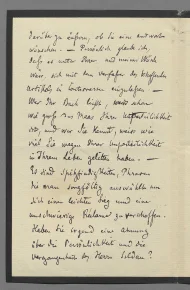 darüber zu äußern, ob Sie eine Antwort
wünschen. — Persönlich glaube ich,
daß es unter Ihrer und meiner Würde
wäre, sich mit dem Verfasser des
Artikels in Controversen einzulassen. —
Wer Ihr Buch liest, weiß schon
wie groß das Maß Ihrer
ist, und wer Sie kennt, weiß wie
viel Sie wegen Ihrer Unparteilichkeit
in Ihrem Leben gelitten haben. —
Es sind Spitzfindigkeiten, Phrasen
die man sorgfältig auswählt um
sich einen leichten Sieg und eine
Reclame zu verschaffen.
Haben Sie irgend eine Ahnung
über die Persönlichkeit und die
Vergangenheit des Herrn